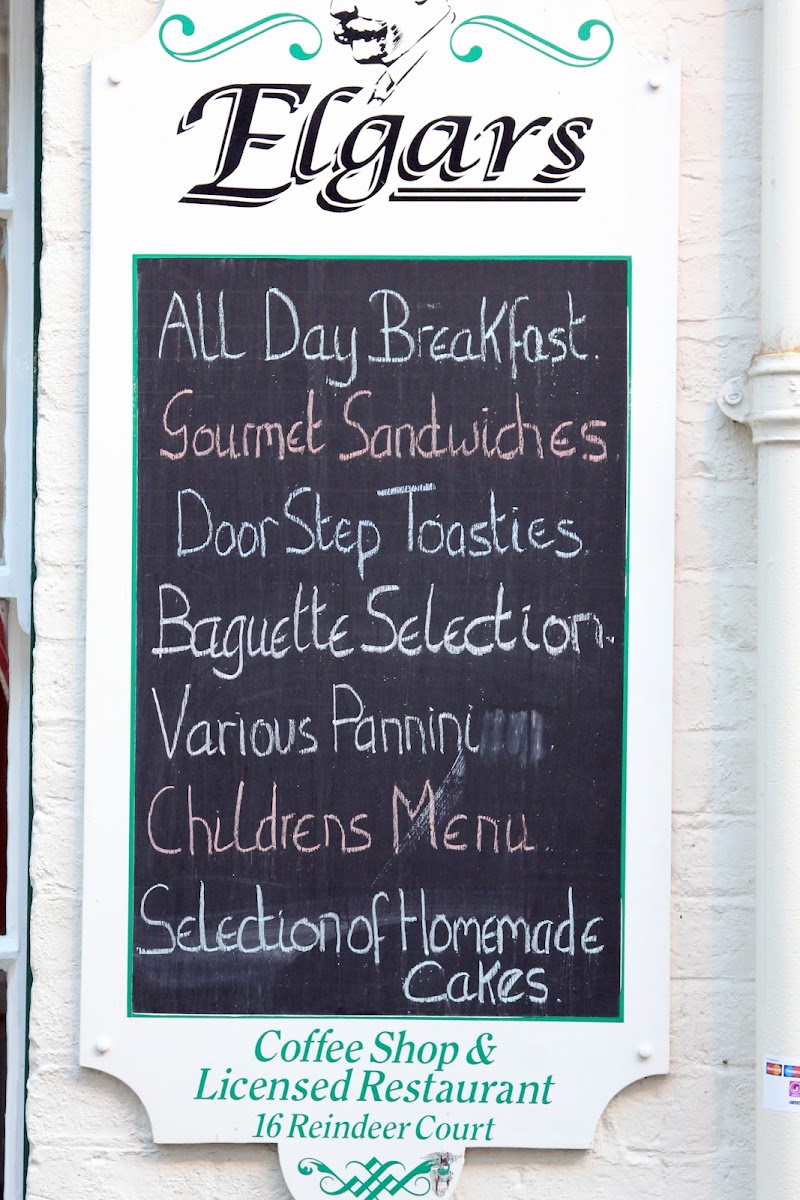 Elgars
All Day Breakfast.
Gourmet Sandwiches
Door Step Toasties
Baguette Selection.
Various Pannini
Childrens Menu
Selection of Homemade
Cakes.
Coffee Shop &
Licensed Restaurant
16 Reindeer Court